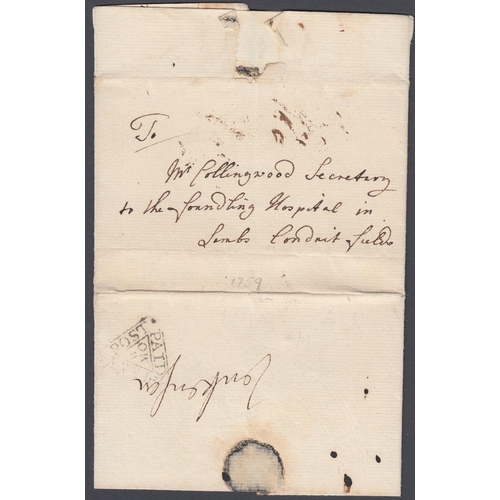 To
Mr Collingwood Secretary
to the Foundling Hospital in
Lambs Conduit Fields
1759
POST
PAID